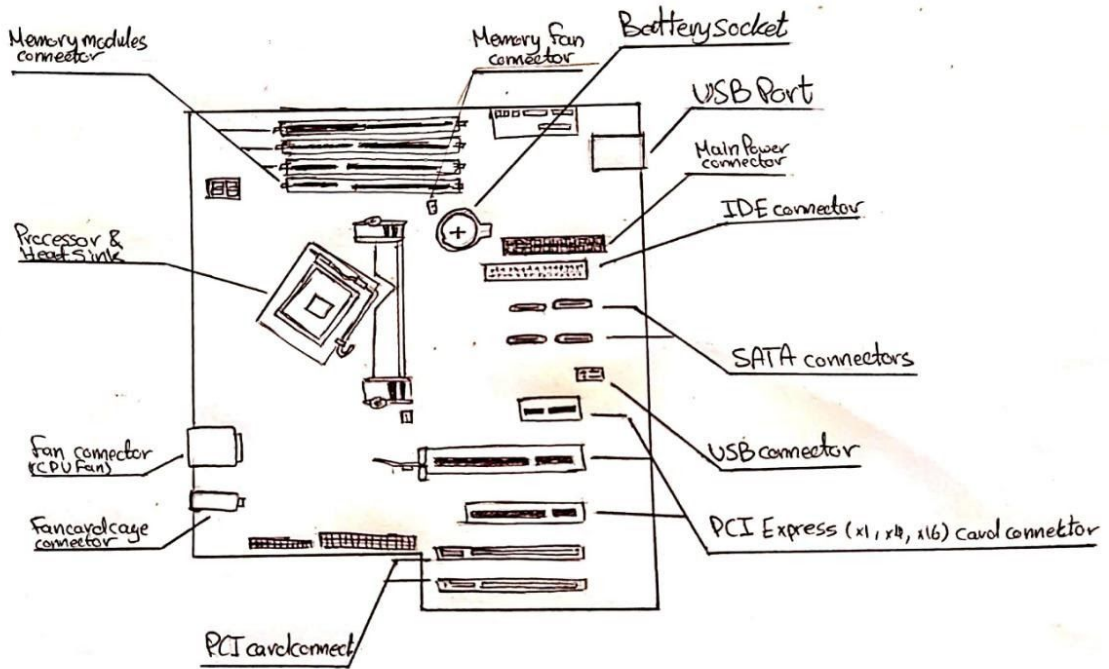 Memory modules
connector
Memory fan
connector
Battery socket
USB Port
Main Power
connector
IDE connector
Processor &
Heat Sink
SATA connectors
fan connector
(CPU Fan)
USB connector
Fan card cage
connector
PCI Express (x1, x4, x16) Card connector
PCI card connect